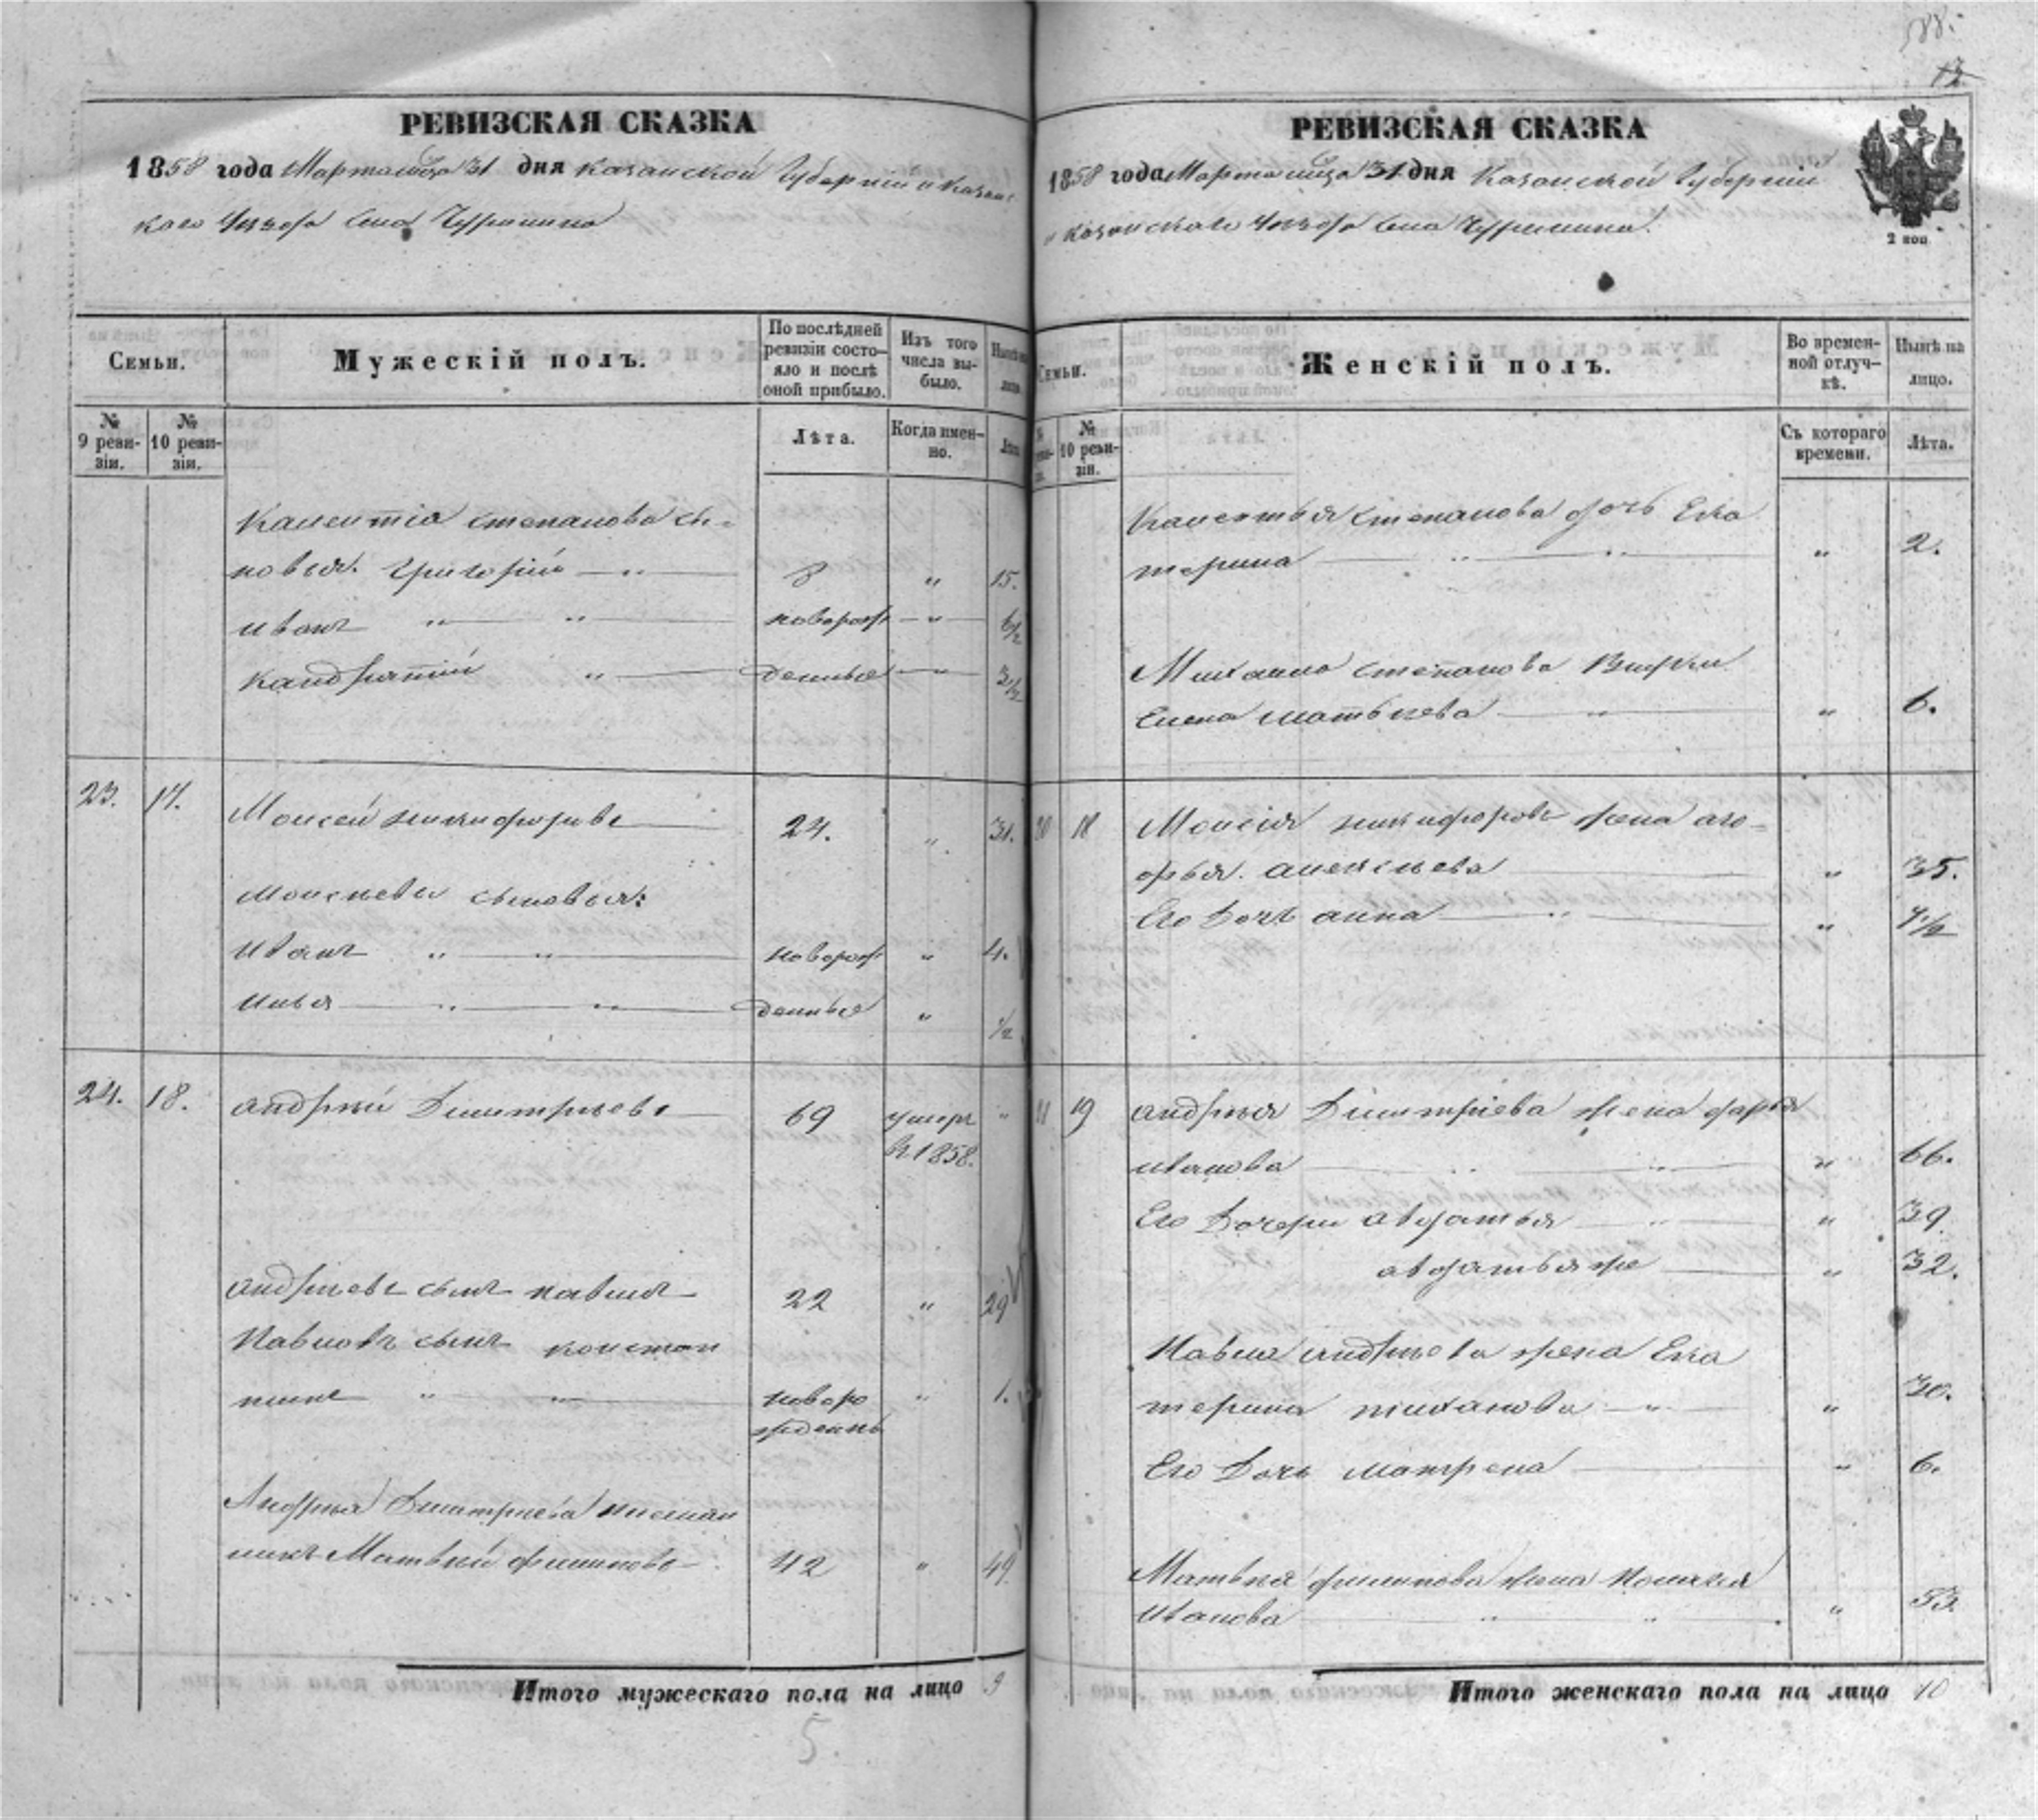 188.
12
РЕВИЗСКАЯ СКАЗКА
1858 года Марта мца 31 дня Казанской Губернiи и Казанс
каго Уѣзда Села
Семьи.
Мужескiй полъ.
По послѣдней
ревизiи состо-
яло и послѣ
оной прибыло.
Изъ того
числа вы-
было.
Нынѣ на
лицо.
№
9 реви-
зiи.
№
10 реви-
зiи.
Лѣта.
Когда имен-
но.
Лѣта.
степанова сы-
новья. Григорiй 8 " 15.
Иванъ " " новорож " 6/2
Кандратiй " денные " 3 1/2
23. 17. Моисей никифоровъ 24. " 31.
Моисѣевы сыновья:
Иванъ " " новорож " 4.
Илья " " денные " 1/2
24. 18. Андрѣй Димитрiевъ 69 умеръ "
въ 1858.
Андрѣевъ сынъ павилъ 22 " 29
Павловъ сынъ констан
тинъ " " новоро " 1.
жденнъ
Андрѣя Димитрiева племян
никъ Матвѣй филиповъ 42 " 49
Итого мужескаго пола на лицо 9
5.
РЕВИЗСКАЯ СКАЗКА
1858 года Марта мца 31 дня Казанской Губернiи
и Казанскаго Уѣзда Села
2 коп
Семьи.
Женскiй полъ.
Во времен-
ной отлуч-
кѣ.
Нынѣ на
лицо.
№
10 реви-
зiи.
Съ котораго
времени.
Лѣта.
степанова дочь Ека
терина " " " 2.
степанова
Елена матвѣева " " 6.
20 18 Моисея никифорова жена аго-
фья. алексѣева " 35.
Его Дочь анна " " 7 1/2
21 19 Андрѣя Димитрiева жена дарья
иванова " " " 66.
Его Дочери авдатья " " 39.
авдатья же " 32.
Павла андрѣева жена Ека
терина " " 30.
Его Дочь матрена " 6.
Матвѣя филипова жена
Иванова " " " 53
Итого женскаго пола на лицо 10